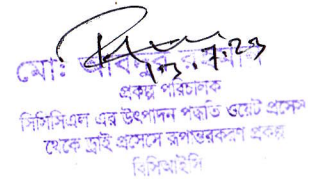 13.7.23
মো:
প্রকল্প পরিচালক
সিসিসিএল এর উৎপাদন পদ্ধতি ওয়েট প্রসেস
থেকে ড্রাই প্রসেসে রূপান্তরকরণ প্রকল্প
বিসিআইসি